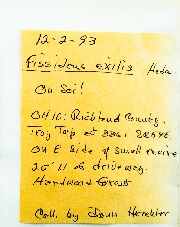 12-2-93
Fissidens exilis Hedw
On Soil
OHIO: Richland County.
Troy Twp at
On E side of small ravine
25' N of driveway.
Hardwood Forest
Coll. by